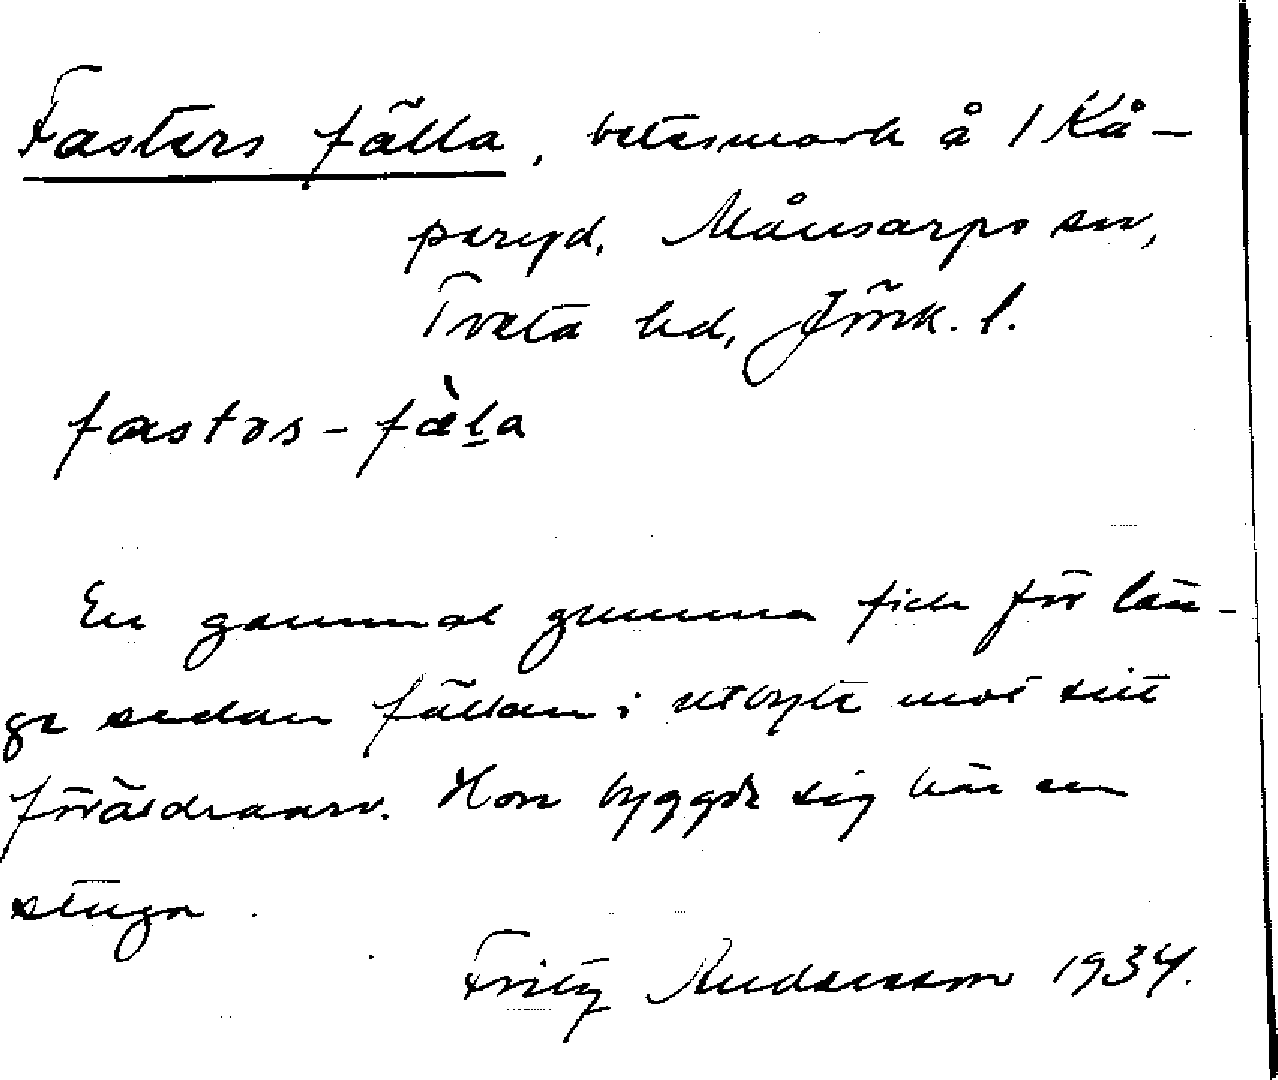 Fasters fälla, betesmark å 1 Kå-
peryd, Månsarps sn,
Tveta hd, Jönk. l.
fastəs-fæ̀l̠a
En gammal gumma fick för län-
ge sedan fällan i utbyte mot sitt
föräldraarv. Hon byggde sig här en
stuga.
Fritz Andersson 1934.